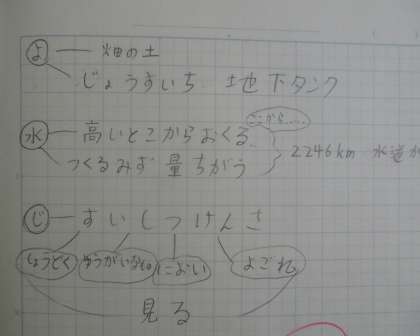 よ 畑の土
じょうすいち 地下タンク
ここから……
水 高いとこからおくる
つくるみず 量ちがう 2246km 水道が
じ すいしつけんさ
しょうどく ゆうがいなもの におい よごれ
見る